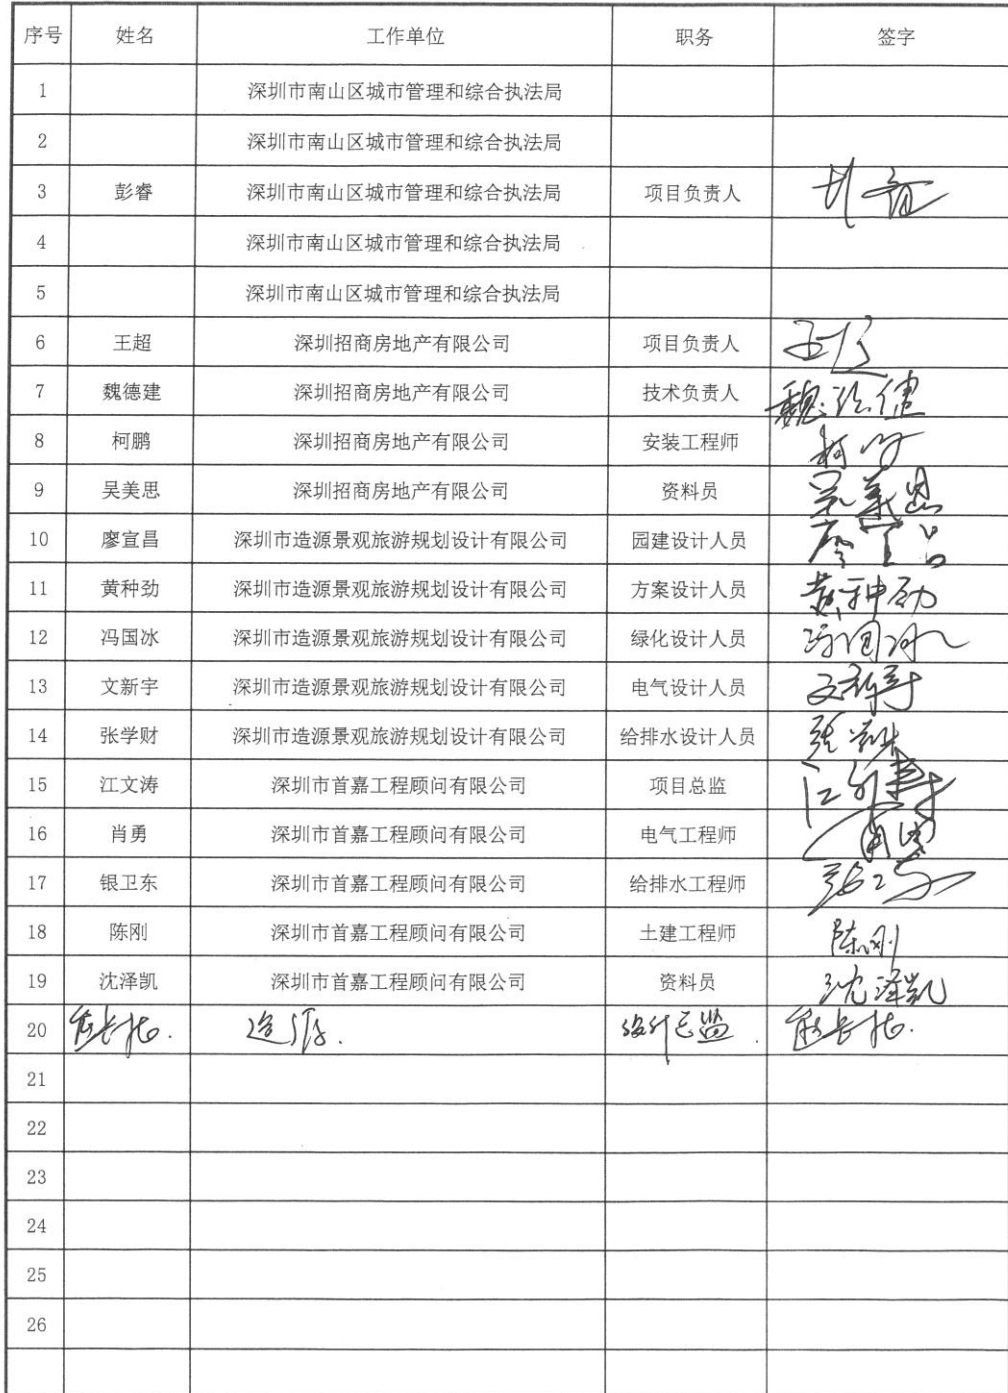 序号 姓名 工作单位 职务 签字
1 深圳市南山区城市管理和综合执法局
2 深圳市南山区城市管理和综合执法局
3 彭睿 深圳市南山区城市管理和综合执法局 项目负责人
4 深圳市南山区城市管理和综合执法局
5 深圳市南山区城市管理和综合执法局
6 王超 深圳招商房地产有限公司 项目负责人 王超
7 魏德建 深圳招商房地产有限公司 技术负责人 魏德健
8 柯鹏 深圳招商房地产有限公司 安装工程师 柯
9 吴美思 深圳招商房地产有限公司 资料员 吴美思
10 廖宣昌 深圳市造源景观旅游规划设计有限公司 园建设计人员
11 黄种劲 深圳市造源景观旅游规划设计有限公司 方案设计人员 黄种劲
12 冯国冰 深圳市造源景观旅游规划设计有限公司 绿化设计人员 冯国冰
13 文新宇 深圳市造源景观旅游规划设计有限公司 电气设计人员 文新宇
14 张学财 深圳市造源景观旅游规划设计有限公司 给排水设计人员 张学财
15 江文涛 深圳市首嘉工程顾问有限公司 项目总监 江文涛
16 肖勇 深圳市首嘉工程顾问有限公司 电气工程师
17 银卫东 深圳市首嘉工程顾问有限公司 给排水工程师
18 陈刚 深圳市首嘉工程顾问有限公司 土建工程师 陈刚
19 沈泽凯 深圳市首嘉工程顾问有限公司 资料员 沈泽凯
20 造源. 设计总监.
21
22
23
24
25
26